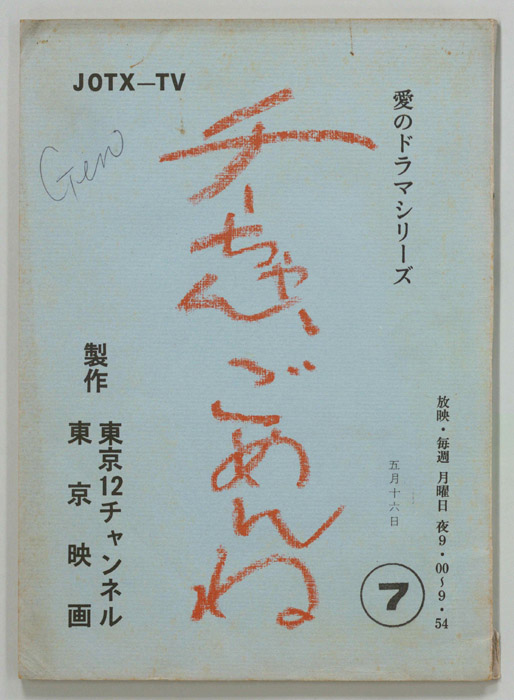 JOTX—TV
Gen
愛のドラマシリーズ
チーちゃん、ごめんね
放映・毎週 月曜日 夜9・00〜9・54
五月十六日
7
製作
東京12チャンネル
東京映画